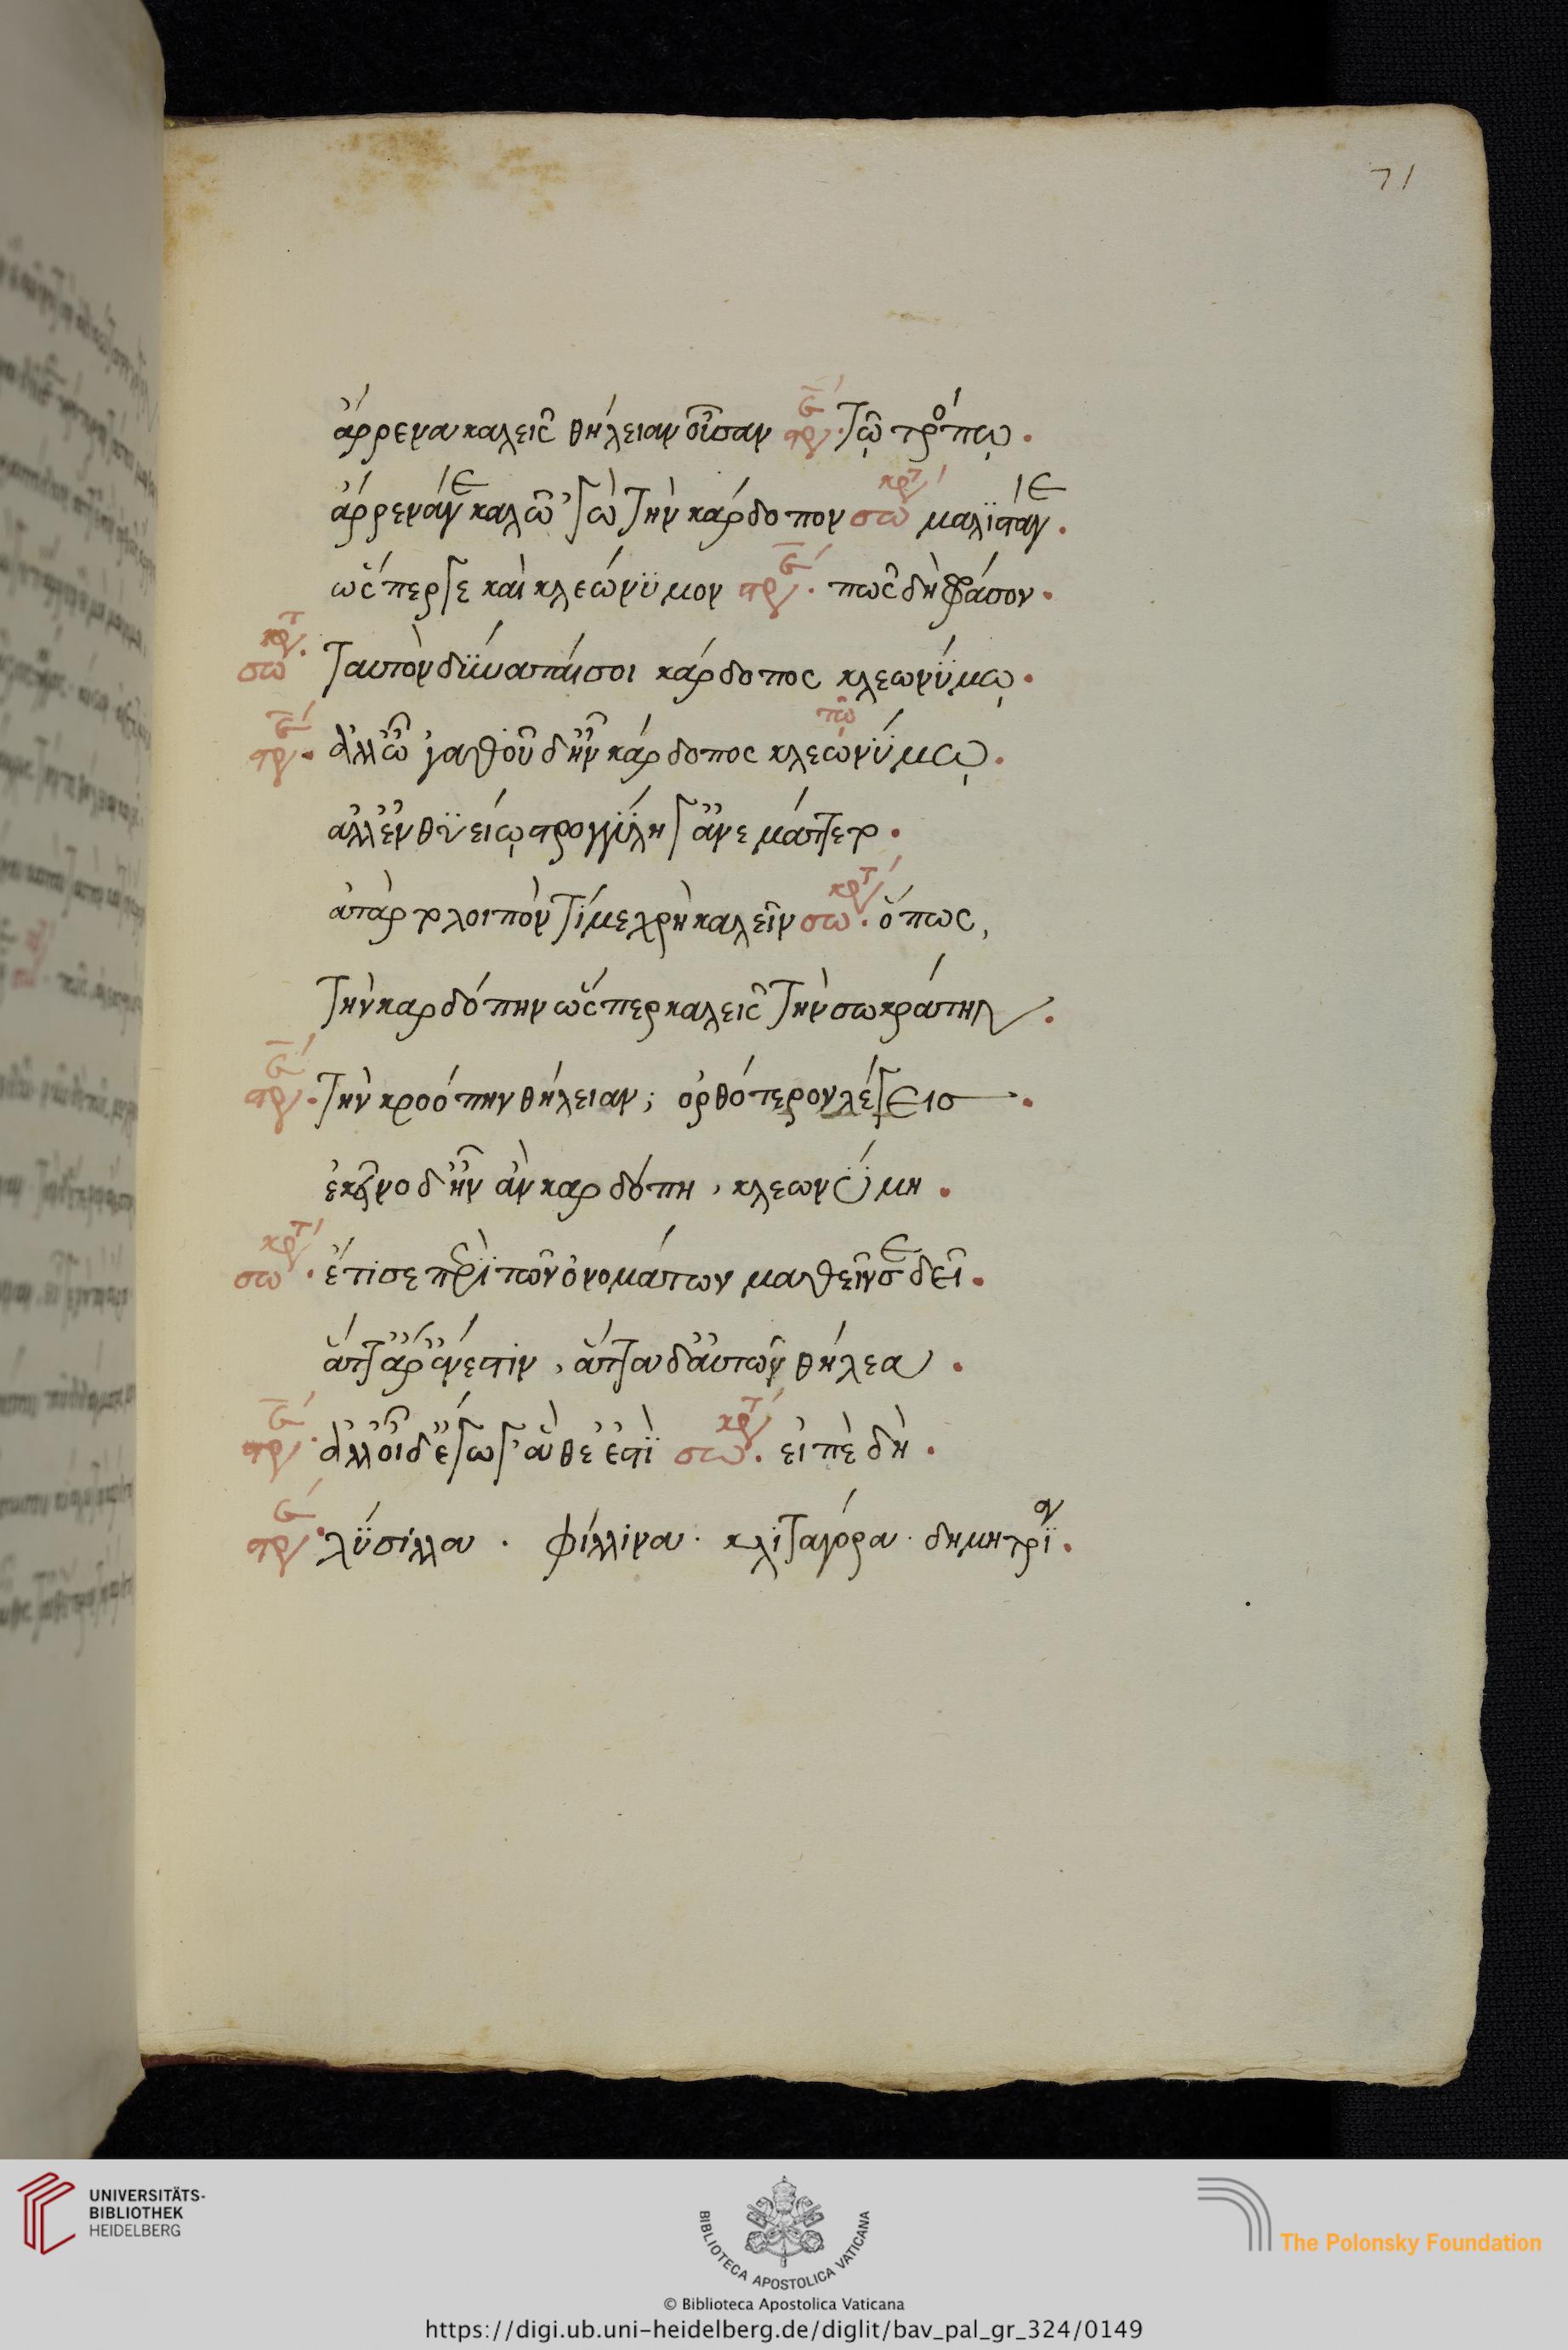 71
ἄρρενα καλεῖς θήλειαν οὖσαν στρ· τῶ τρόπω.
ἄρρενά γε καλῶ ᾽γὼ τὴν κάρδοπον σω κρτ μαλϊστά γε.
ὥσπερ γε καὶ κλεώνϋμον στρ· πῶς δὴ φράσον.
σω κρτ· ταυτὸν δϋναταί σοι κάρδοπος κλεωνύμω.
στρ· ἀλλ' ὦ 'γαθ' οὐδ' ἦν κάρδοπος κλεωνύμω.
αλλ' ἐν θϋείω στρογγύλη γ' ἀνεμάττετο.
ἀτὰρ το λοιπὸν τί με χρὴ καλεῖν σω κρτ· ὅπως,
τὴν καρδόπην ὥσπερ καλεῖς τὴν σωκράτην.
στρ· τὴν κροόπην θήλειαν; ὀρθότερον λέγεισ.
ἐκεῖνο δ' ἦν ἂν καρδόπη, κλεωνύμη.
σω κρτ· ἔτι σε περὶ τῶν ὀνομάτων μαθεῖν σε δεῖ.
ἅττ' ἄρρεν' ἐστὶν, ἅττα δ' αὐτῶν θήλεα.
στρ· ἀλλ' οἶδ' ἔγωγ' ἃ θέ ἐστϊ σω κρτ· εἰπὲ δὴ.
στρ· λϋσίλλα · φίλλινα · κλιταγόρα · δημητρϊα.
UNIVERSITÄTS-
BIBLIOTHEK
HEIDELBERG
BIBLIOTECA APOSTOLICA VATICANA
© Biblioteca Apostolica Vaticana
The Polonsky Foundation
https://digi.ub.uni-heidelberg.de/diglit/bav_pal_gr_324/0149